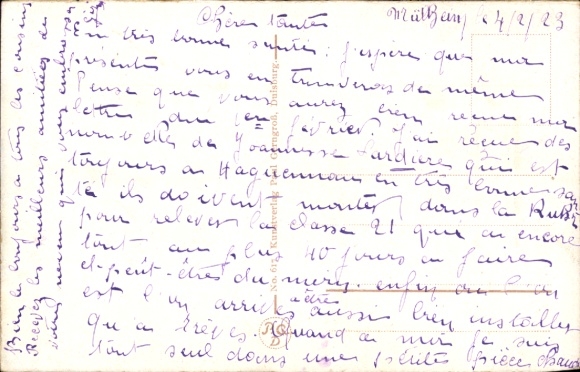 Mülheim 4/2/23
Chères tantes
En très bonne santé; j'espère que ma
présente vous en trouveras de même
Pense que vous aurez bien reçue ma
lettre du 1er février. J'ai reçue des
nouvelles de Joannesse Lardière qui est
toujours a Haguenau en très bonne san
té ils doivent monter dans la Ruhr
pour relever la classe 21 qui a encore
tout au plus 40 jours a faire
et peut-être du mois. enfin ou l'on
est l'on arrive a être aussi bien installer
qu'a Trèves. Quand a moi je suis
tout seul dans une petite pièce
Bien le bonjours a tous les cousins
Recevez les meilleurs amitiés de
votre neveu qui vous embrasse
No. 613 Kunstverlag Paul Gerngroß, Duisburg